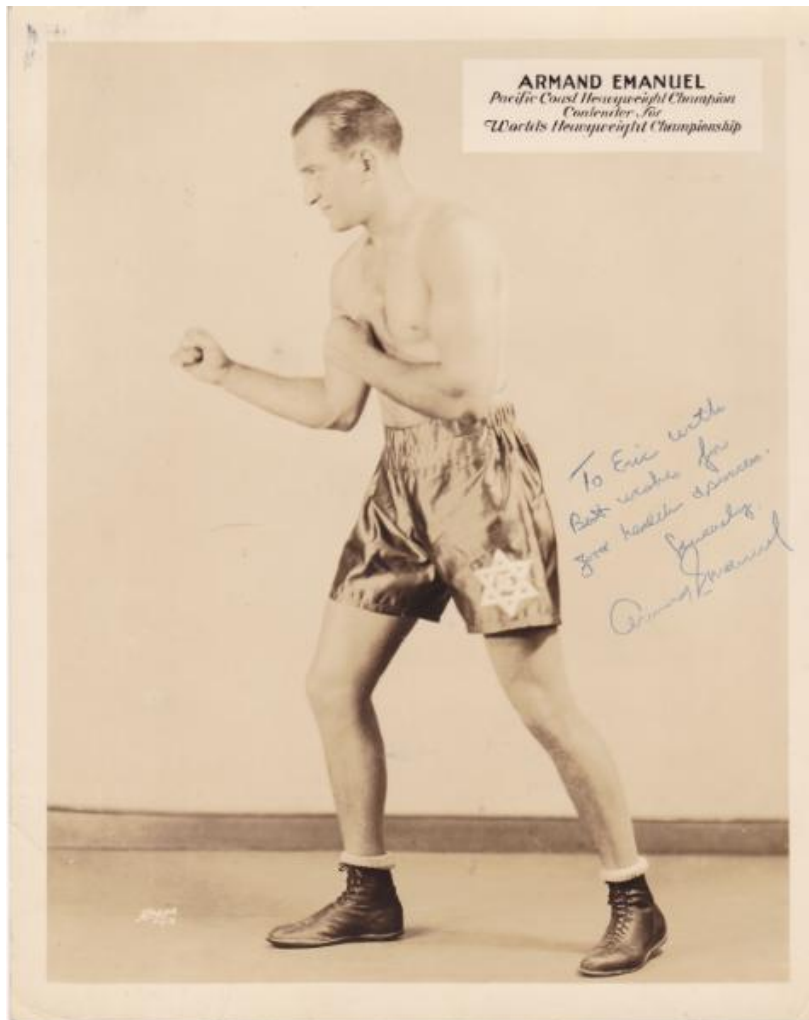 ARMAND EMANUEL
Pacific Coast Heavyweight Champion
Contender for
Worlds Heavyweight Championship
To Eric with
Best wishes for
good health &
Sincerely,
Armand Emanuel